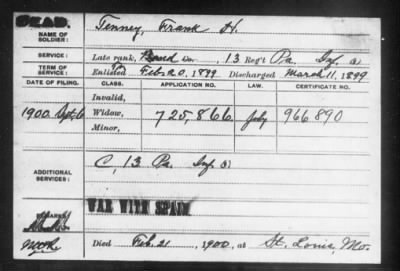 DEAD.
NAME OF SOLDIER: Tenney, Frank H.
SERVICE: Late rank, Band Co. , 13 Reg't Pa. Inf.
TERM OF SERVICE: Enlisted Feb. 20, 1899 Discharged March 11, 1899
DATE OF FILING. CLASS. APPLICATION NO. LAW. CERTIFICATE NO.
Invalid,
1900 Sept. 6 Widow, 725,866 July 966 890
Minor,
ADDITIONAL SERVICES: C, 13 Pa. Inf.
WAR WITH SPAIN
REMARKS:
Died Feb. 21, 1900, at St. Louis, Mo.